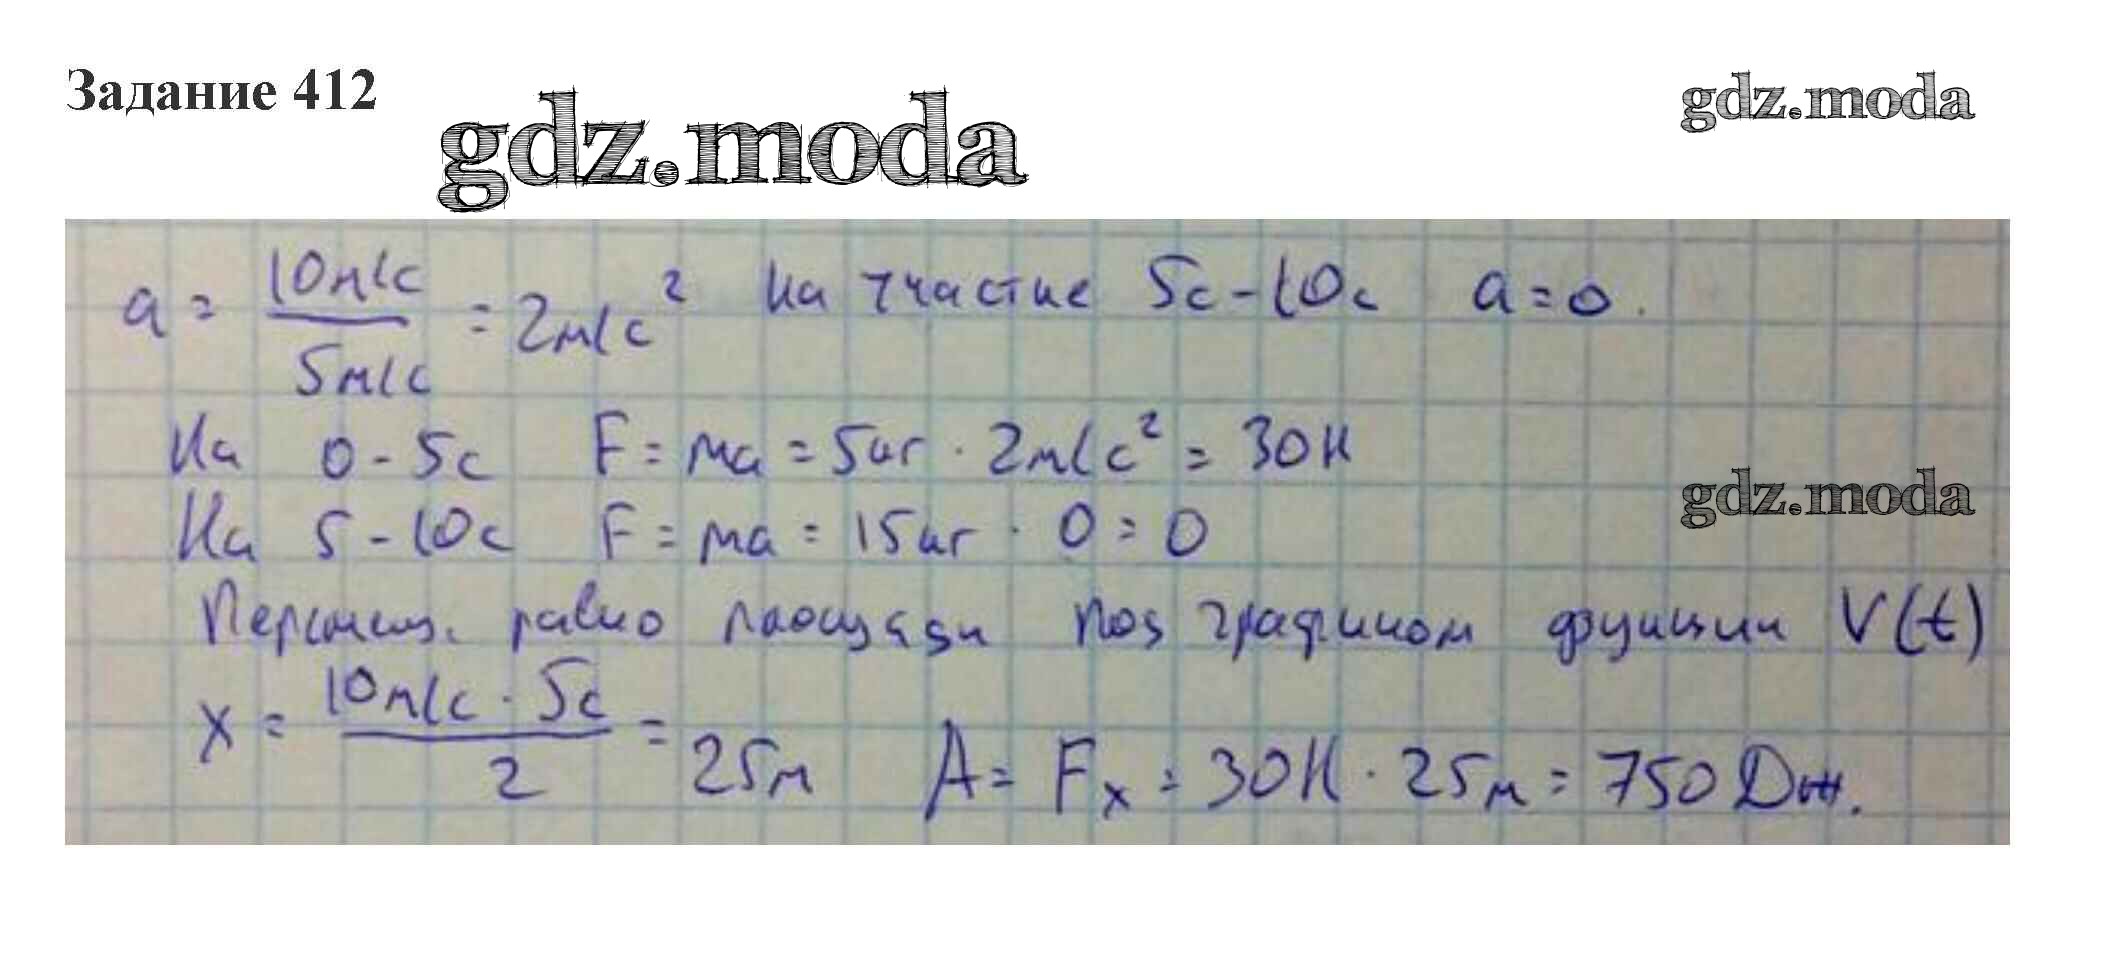 Задание 412
gdz.moda
gdz.moda
a = 10м/с / 5м/с = 2м/с² На участке 5с - 10с a = 0.
На 0 - 5с F = ma = 5кг · 2м/с² = 30Н
На 5 - 10с F = ma = 15кг · 0 = 0
gdz.moda
Перемещ. равно площади под графиком функции V(t)
x = 10м/с · 5с / 2 = 25м A = Fx = 30Н · 25м = 750 Дж.